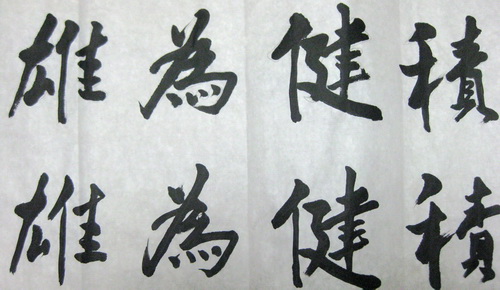 積健為雄
積健為雄